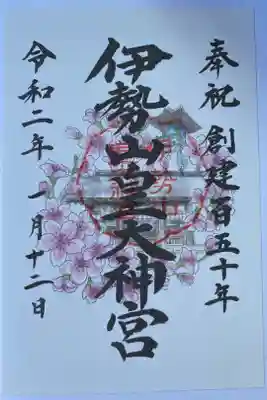 奉祝 創建百五十年
伊勢山皇大神宮
令和二年 一月十二日